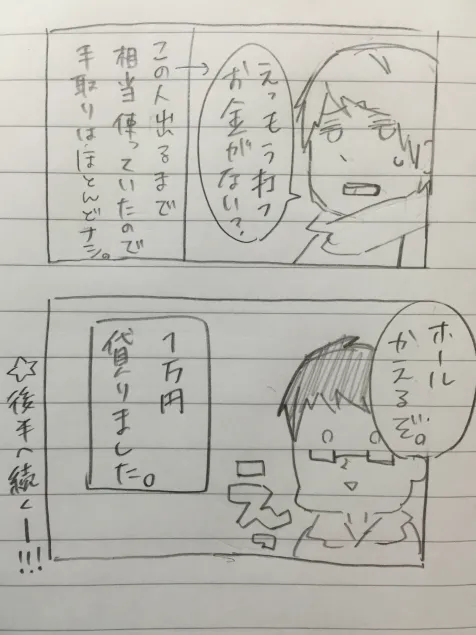 えっもう打つ
お金がない?
この人出るまで
相当使っていたので
手取りはほとんどナシ。
ホール
かえるぞ。
え。
1万円
貸りました。
☆後半へ続くー!!!